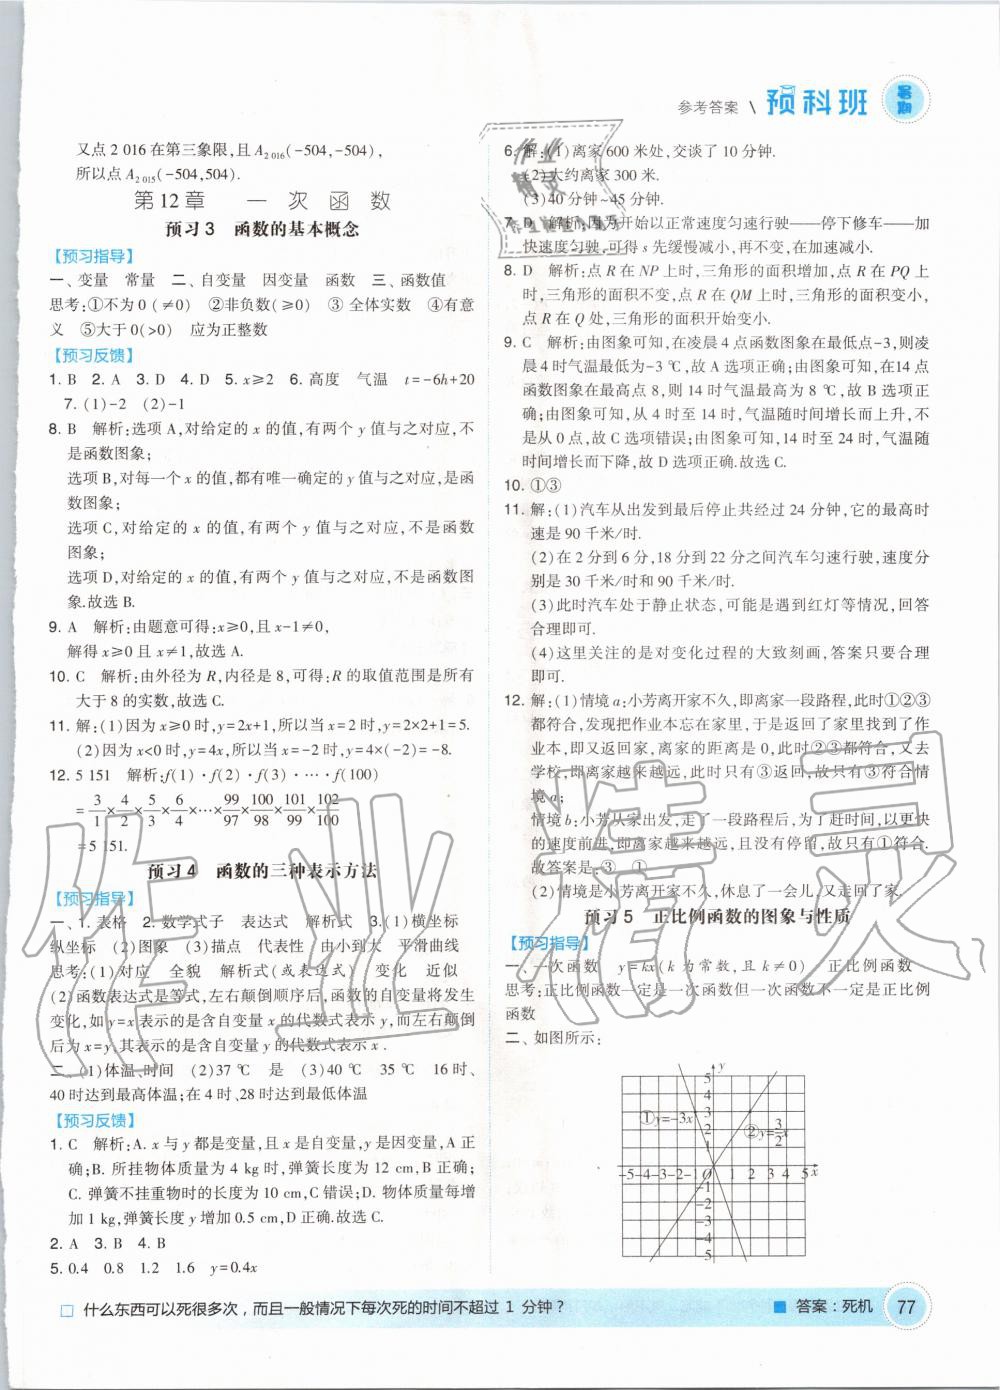 参考答案 \ 预科班 暑期
又点 2 016 在第三象限,且 A₂ ₀₁₆(-504,-504),
所以点 A₂ ₀₁₅(-504,504).
第12章 一次函数
预习 3 函数的基本概念
【预习指导】
一、变量 常量 二、自变量 因变量 函数 三、函数值
思考:①不为 0 (≠0) ②非负数(≥0) ③ 全体实数 ④有意
义 ⑤大于 0(>0) 应为正整数
【预习反馈】
1. B 2. A 3. D 4. D 5. x≥2 6. 高度 气温 t=-6h+20
7. (1)-2 (2)-1
8. B 解析:选项 A,对给定的 x 的值,有两个 y 值与之对应,不
是函数图象;
选项 B,对每一个 x 的值,都有唯一确定的 y 值与之对应,是函
数图象;
选项 C,对给定的 x 的值,有两个 y 值与之对应,不是函数
图象;
选项 D,对给定的 x 的值,有两个 y 值与之对应,不是函数图
象.故选 B.
9. A 解析:由题意可得:x≥0,且 x-1≠0,
解得 x≥0 且 x≠1,故选 A.
10. C 解析:由外径为 R,内径是 8,可得:R 的取值范围是所有
大于 8 的实数,故选 C.
11. 解:(1)因为 x≥0 时,y=2x+1,所以当 x=2 时,y=2×2+1=5.
(2)因为 x<0 时,y=4x,所以当 x=-2 时,y=4×(-2)=-8.
12. 5 151 解析:f(1)·f(2)·f(3)·…·f(100)
=3/1×4/2×5/3×6/4×…×99/97×100/98×101/99×102/100
=5 151.
预习 4 函数的三种表示方法
【预习指导】
一、1. 表格 2. 数学式子 表达式 解析式 3. (1)横坐标
纵坐标 (2)图象 (3)描点 代表性 由小到大 平滑曲线
思考:(1)对应 全貌 解析式(或表达式) 变化 近似
(2)函数表达式是等式,左右颠倒顺序后,函数的自变量将发生
变化,如 y=x 表示的是含自变量 x 的代数式表示 y,而左右颠倒
后为 x=y,其表示的是含自变量 y 的代数式表示 x .
二、(1)体温、时间 (2)37 ℃ 是 (3)40 ℃ 35 ℃ 16 时、
40 时达到最高体温;在 4 时、28 时达到最低体温
【预习反馈】
1. C 解析:A. x 与 y 都是变量,且 x 是自变量,y 是因变量,A 正
确;B. 所挂物体质量为 4 kg 时,弹簧长度为 12 cm,B 正确;
C. 弹簧不挂重物时的长度为 10 cm,C 错误;D. 物体质量每增
加 1 kg,弹簧长度 y 增加 0.5 cm,D 正确.故选 C.
2. A 3. B 4. B
5. 0.4 0.8 1.2 1.6 y=0.4x
6. 解:(1)离家 600 米处,交谈了 10 分钟.
(2)大约离家 300 米.
(3)40分钟~45 分钟.
7. D 解析:因为开始以正常速度匀速行驶——停下修车——加
快速度匀驶,可得 s 先缓慢减小,再不变,在加速减小.
8. D 解析:点 R 在 NP 上时,三角形的面积增加,点 R 在 PQ 上
时,三角形的面积不变,点 R 在 QM 上时,三角形的面积变小,
点 R 在 Q 处,三角形的面积开始变小.
9. C 解析:由图象可知,在凌晨 4 点函数图象在最低点-3,则凌
晨 4 时气温最低为-3 ℃,故 A 选项正确;由图象可知,在14 点
函数图象在最高点 8,则 14 时气温最高为 8 ℃,故 B 选项正
确;由图象可知,从 4 时至 14 时,气温随时间增长而上升,不
是从 0 点,故 C 选项错误;由图象可知,14 时至 24 时,气温随
时间增长而下降,故 D 选项正确.故选 C.
10. ①③
11. 解:(1)汽车从出发到最后停止共经过 24 分钟,它的最高时
速是 90 千米/时.
(2)在 2 分到 6 分,18 分到 22 分之间汽车匀速行驶,速度分
别是 30 千米/时和 90 千米/时.
(3)此时汽车处于静止状态,可能是遇到红灯等情况,回答
合理即可.
(4)这里关注的是对变化过程的大致刻画,答案只要合理
即可.
12. 解:(1)情境 a:小芳离开家不久,即离家一段路程,此时①②③
都符合,发现把作业本忘在家里,于是返回了家里找到了作
业本,即又返回家,离家的距离是 0,此时②③都符合,又去
学校,即离家越来越远,此时只有③返回,故只有③符合情
境 a;
情境 b:小芳从家出发,走了一段路程后,为了赶时间,以更快
的速度前进,即离家越来越远,且没有停留,故只有①符合.
故答案是:③ ①
(2)情境是小芳离开家不久,休息了一会儿,又走回了家.
预习 5 正比例函数的图象与性质
【预习指导】
一、一次函数 y=kx(k 为常数,且 k≠0) 正比例函数
思考:正比例函数一定是一次函数但一次函数不一定是正比例
函数
二、如图所示:
y
5
4
3
2
1
①y=-3x
②y=3/2x
-5-4-3-2-1 O 1 2 3 4 5 x
-1
-2
-3
-4
-5
什么东西可以死很多次,而且一般情况下每次死的时间不超过 1 分钟？
答案:死机
77
作业精灵
作业精灵